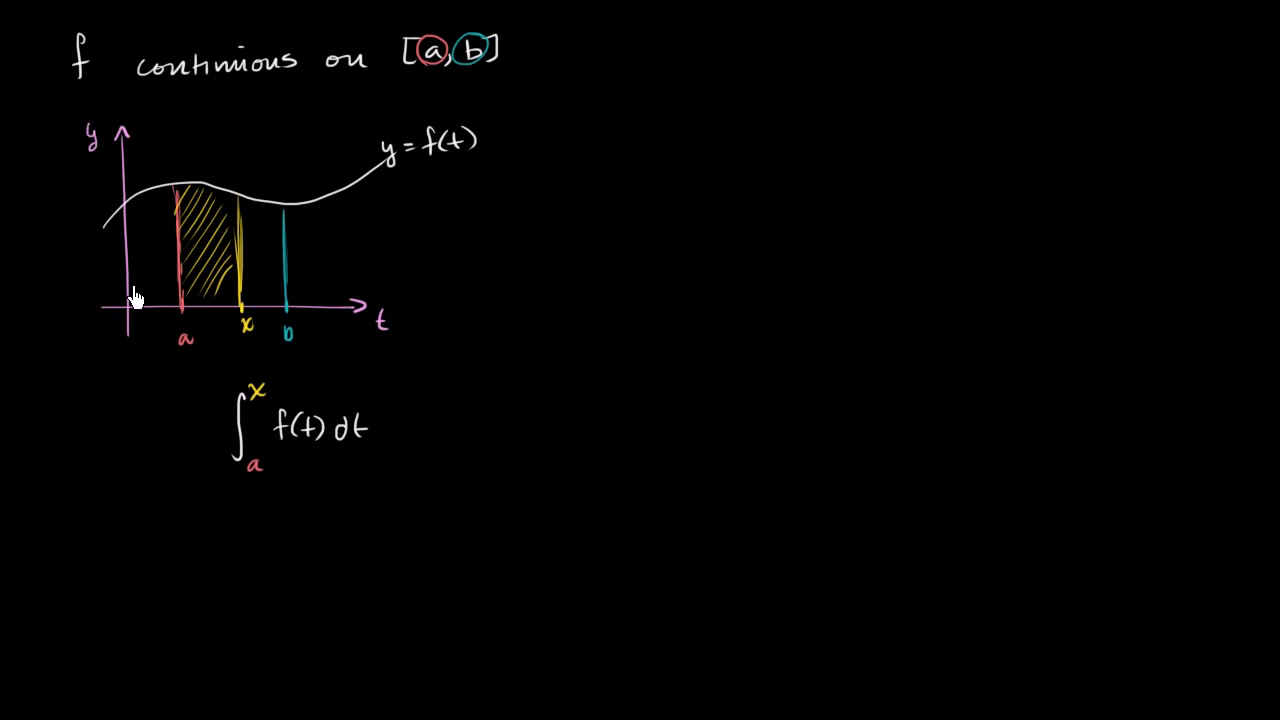 f continuous on [a,b]
y
y = f(t)
a
x
b
t
∫ₐˣ f(t) dt